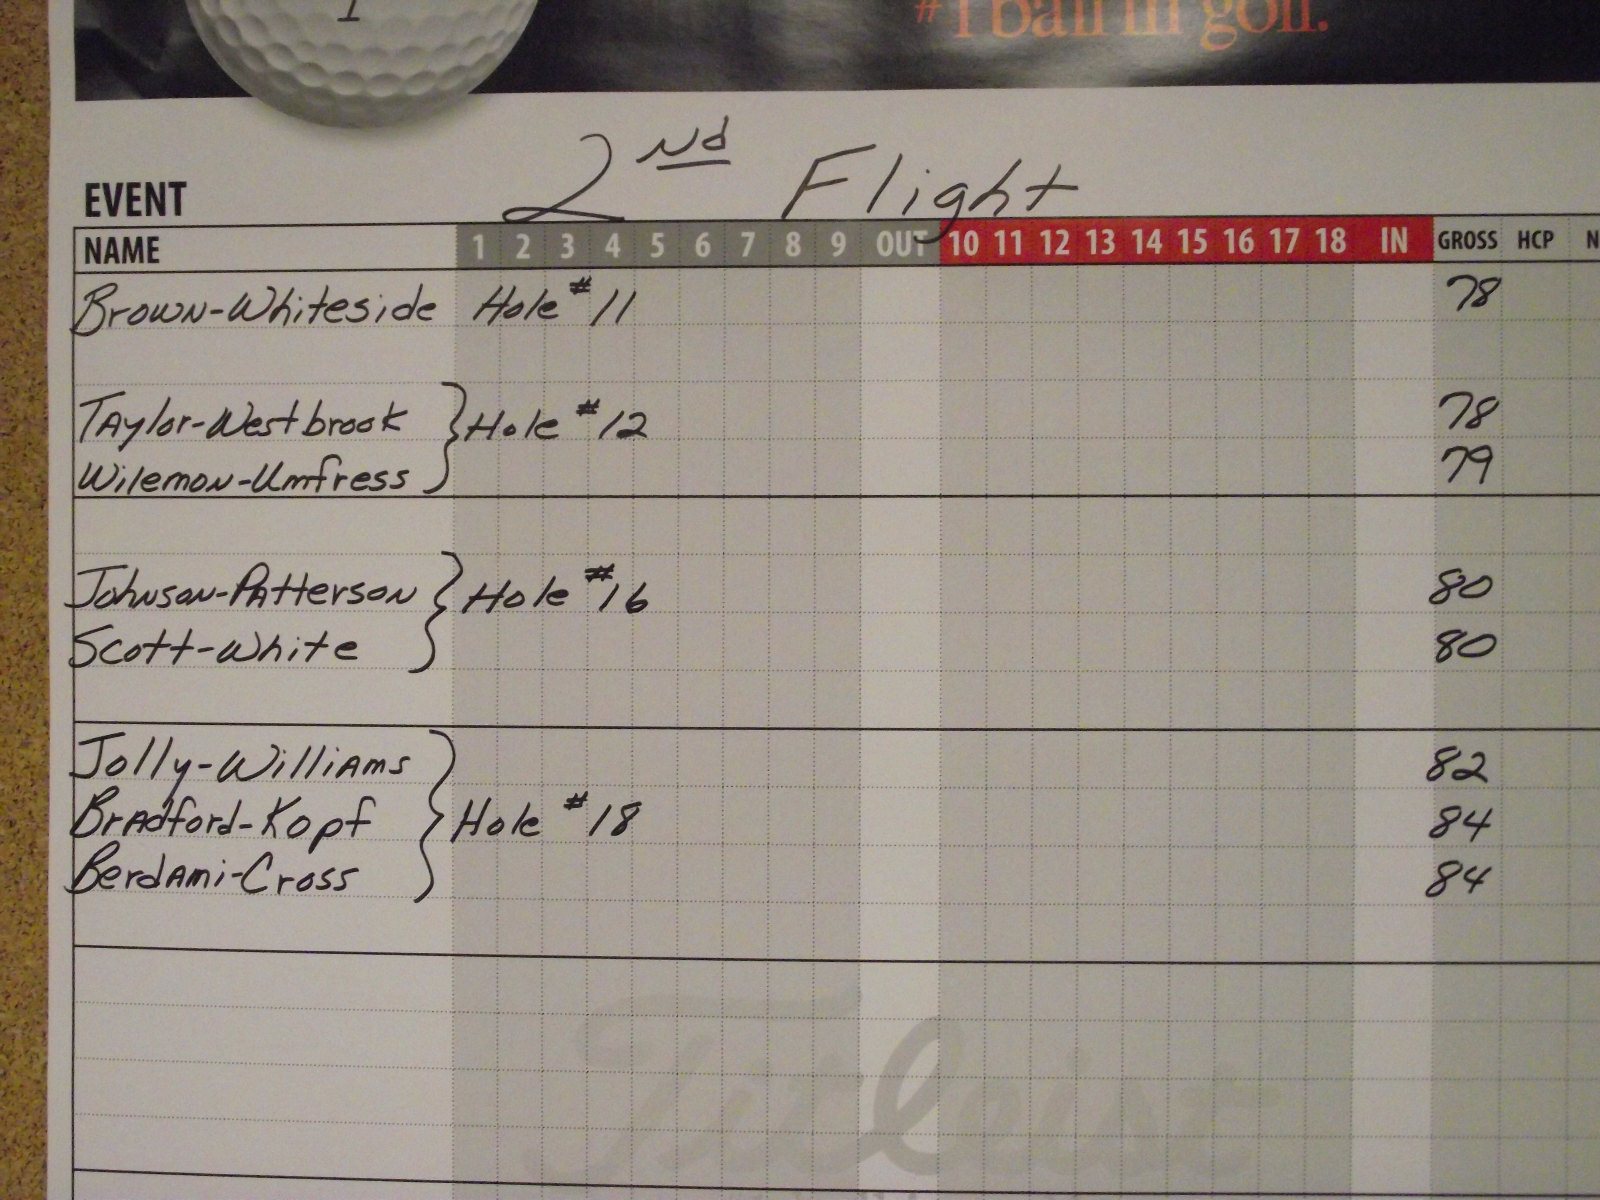 1
#1 ball in golf.
2nd Flight
EVENT
NAME 1 2 3 4 5 6 7 8 9 OUT 10 11 12 13 14 15 16 17 18 IN GROSS HCP N
Brown-Whiteside Hole #11 78
Taylor-Westbrook Hole #12 78
Wilemon-Umfress 79
Johnson-Patterson Hole #16 80
Scott-White 80
Jolly-Williams 82
Bradford-Kopf Hole #18 84
Berdami-Cross 84
Titleist